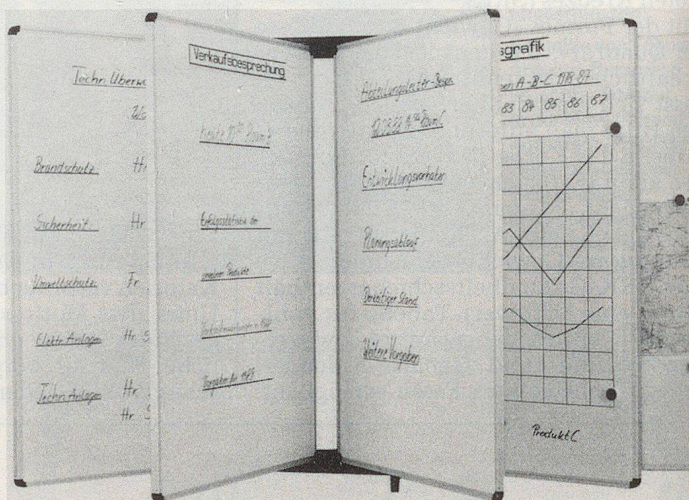 Techn. Überwa
Brandschutz Hr
Sicherheit Hr
Umweltschutz Fr.
Elektr. Anlagen Hr. S
Techn. Anlagen Hr.
Hr. S
Verkaufsbesprechung
Erfolgsstatistik der
Produkte
Vorgaben für 1987
Abteilungsleiter-Bespr.
Entwicklungsvorhaben
Planungsablauf
Derzeitiger Stand
Weitere Vorgaben
sgrafik
en A-B-C 1983-87
83 84 85 86 87
Produkt C